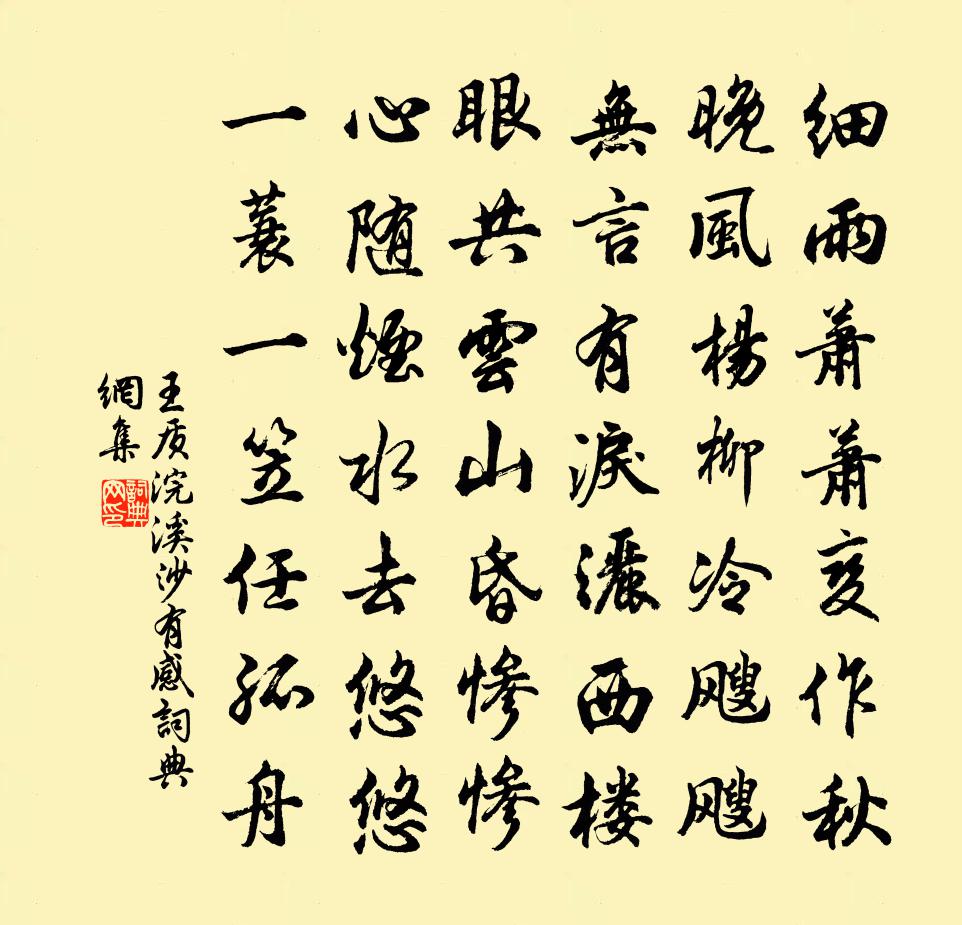 細雨蕭蕭变作秋
晚風楊柳冷颼颼
無言有淚灑西楼
眼共雲山昏惨惨
心随煙水去悠悠
一蓑一笠任孤舟
王质浣溪沙有感詞典
網集
詞典
网印